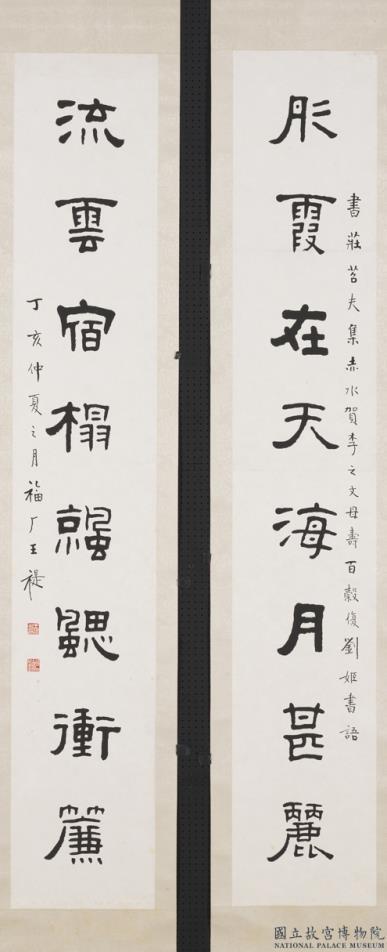 彤霞在天海月甚麗
書莊苕夫集赤水賀李之文母壽百穀復劉姬書語
流雲宿榻颸衝簾
丁亥仲夏之月福厂王禔
國立故宮博物院
NATIONAL PALACE MUSEUM